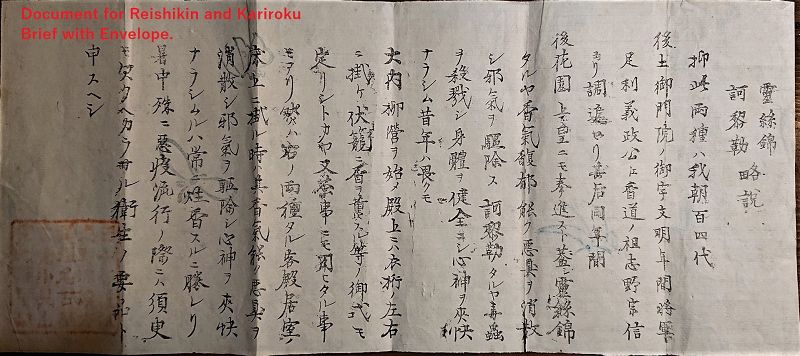 Document for Reishikin and Kariroku
Brief with Envelope.
靈絲錦
訶黎勒 略説
抑此両種ハ我朝百四代
後土御門院ノ御宇文明年間將軍
足利義政公ト香道ノ祖志野宗信
ヨリ調
後花園上皇ニモ奉進ス蓋シ靈絲錦
タルヤ香氣馥郁能ク悪臭ヲ消散
シ邪氣ヲ駆除ス訶黎勒タルヤ毒蟲
ヲ殺戮シ身體ヲ健全ニシ心神ヲ爽快
ナラシム昔年ハ畏クモ
大内柳營ヲ始メ殿上ニハ衣桁ノ左右
ニ掛ケ伏籠ニ香ヲ薫スル等ノ御式モ
定リシトカヤ又茶事ニモ用ヒタル事
モアリ然ハ右ノ両種タル客殿居室ノ
床上ニ掛ル時ハ其香氣能ク悪臭ヲ
消散シ邪氣ヲ駆除シ心神ヲ爽快
ナラシムルハ常ニ炷香スルニ勝レリ
暑中殊ニ悪疫流行ノ際ニハ須臾
モ欠クヘカラサル衛生ノ要品ト
申スヘシ